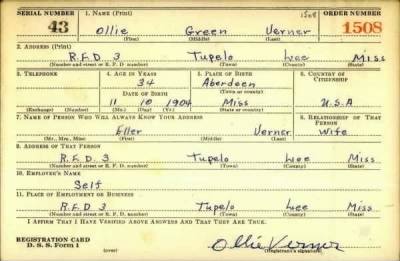 SERIAL NUMBER 1. NAME (Print) 1508 ORDER NUMBER
43 Ollie Green Verner 1508
(First) (Middle) (Last)
2. ADDRESS (Print)
R.F.D 3 Tupelo Lee Miss
(Number and street or R. F. D. number) (Town) (County) (State)
3. TELEPHONE 4. AGE IN YEARS 5. PLACE OF BIRTH 6. COUNTRY OF CITIZENSHIP
34 Aberdeen
DATE OF BIRTH (Town or county)
11 10 1904 Miss U.S.A
(Exchange) (Number) (Mo.) (Day) (Yr.) (State or country)
7. NAME OF PERSON WHO WILL ALWAYS KNOW YOUR ADDRESS 8. RELATIONSHIP OF THAT PERSON
Eller Verner Wife
(Mr., Mrs., Miss) (First) (Middle) (Last)
9. ADDRESS OF THAT PERSON
R.F.D 3 Tupelo Lee Miss
(Number and street or R. F. D. number) (Town) (County) (State)
10. EMPLOYER'S NAME
Self
11. PLACE OF EMPLOYMENT OR BUSINESS
R.F.D 3 Tupelo Lee Miss
(Number and street or R. F. D. number) (Town) (County) (State)
I AFFIRM THAT I HAVE VERIFIED ABOVE ANSWERS AND THAT THEY ARE TRUE.
REGISTRATION CARD
D. S. S. Form 1 (over) Ollie Verner
(Registrant's signature)